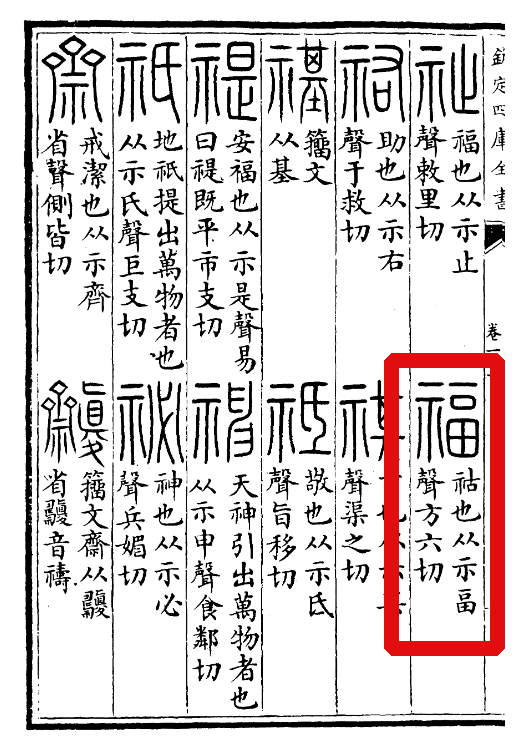 欽定四庫全書
卷一
祉
福也从示止
聲敕里切
福
祜也从示畐
聲方六切
祐
助也从示右
聲于救切
祺
也从示其
聲渠之切
禥
籒文
从基
祗
敬也从示氐
聲旨移切
禔
安福也从示是聲易
曰禔既平市支切
神
天神引出萬物者也
从示申聲食鄰切
祇
地祇提出萬物者也
从示氏聲巨支切
祕
神也从示必
聲兵媚切
齋
戒潔也从示齊
省聲側皆切
籒文齋从
省音禱